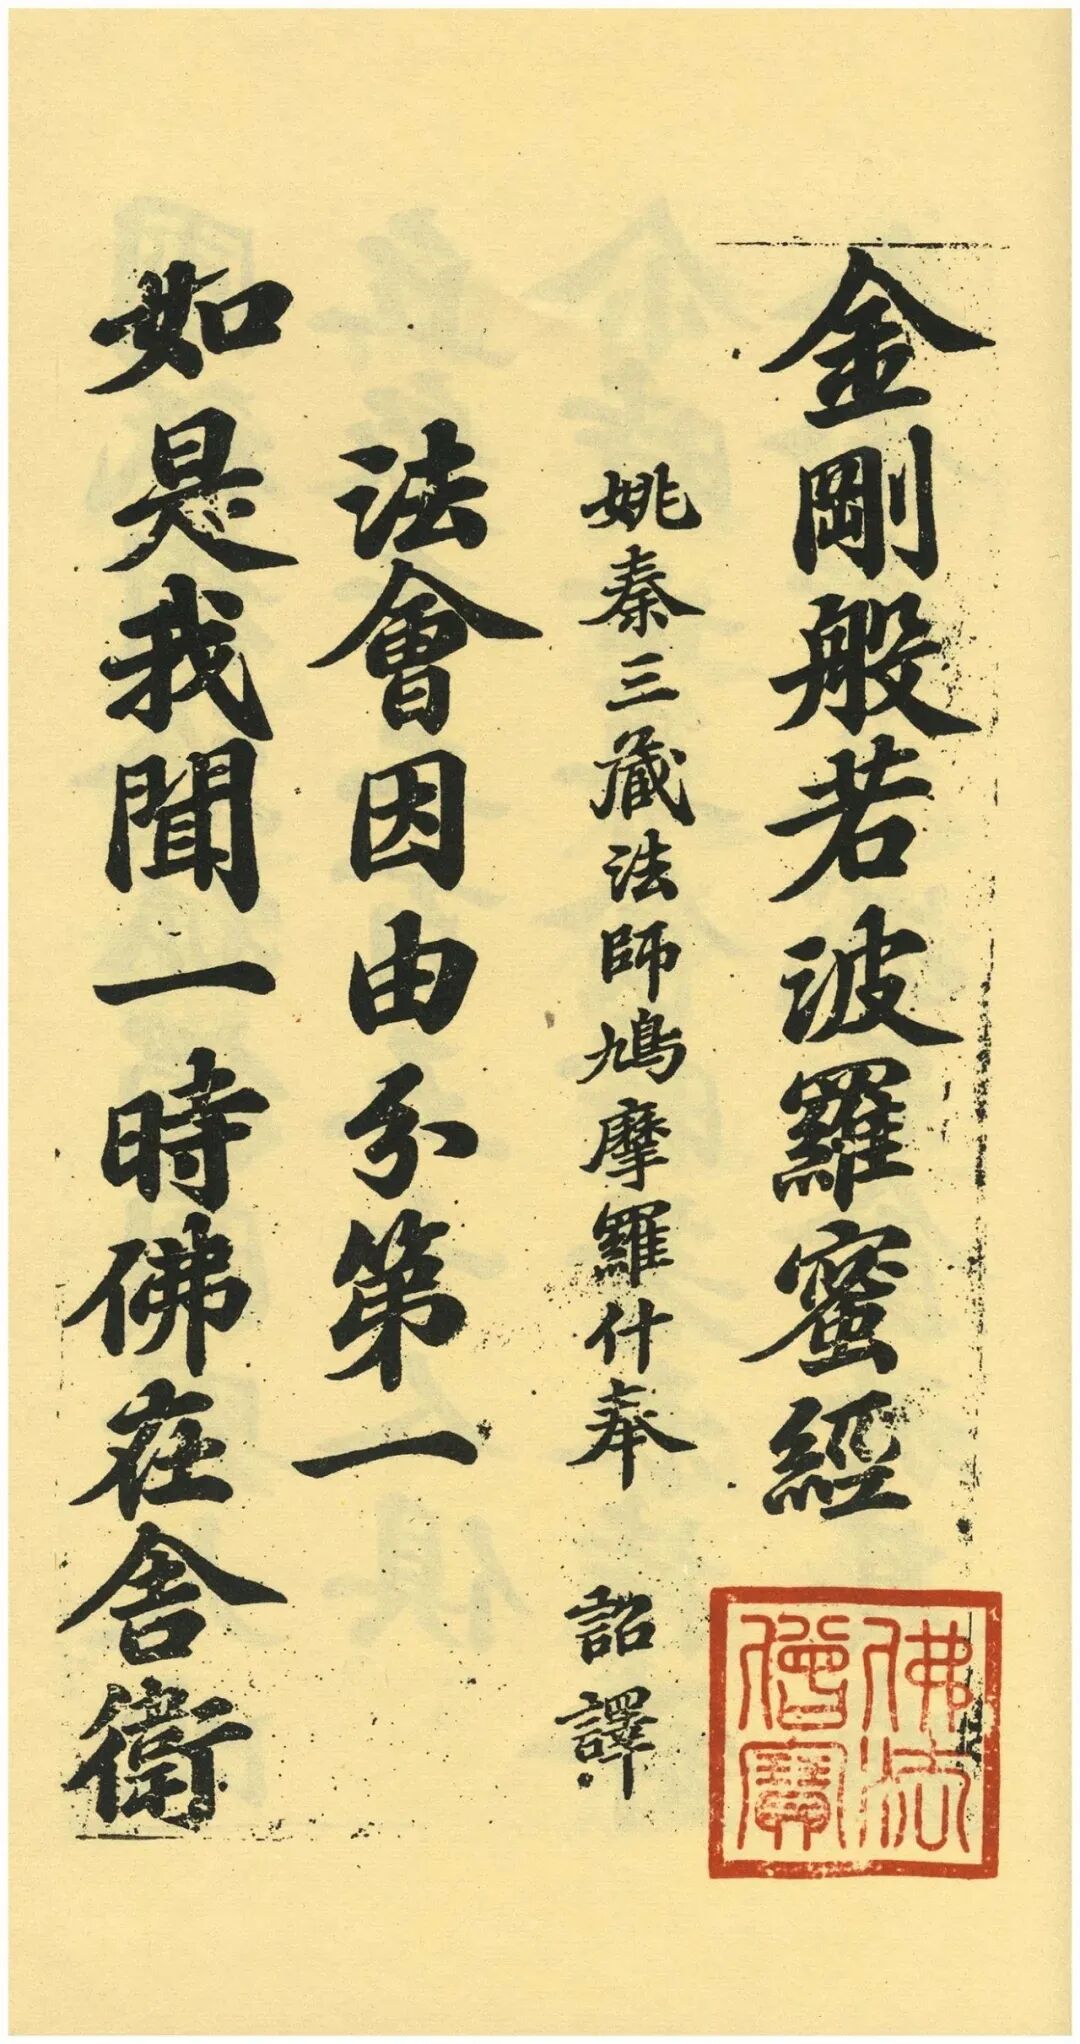 金剛般若波羅蜜經
姚秦三藏法師鳩摩羅什奉 詔譯
法會因由分第一
如是我聞一時佛在舍衛
佛法
僧寶